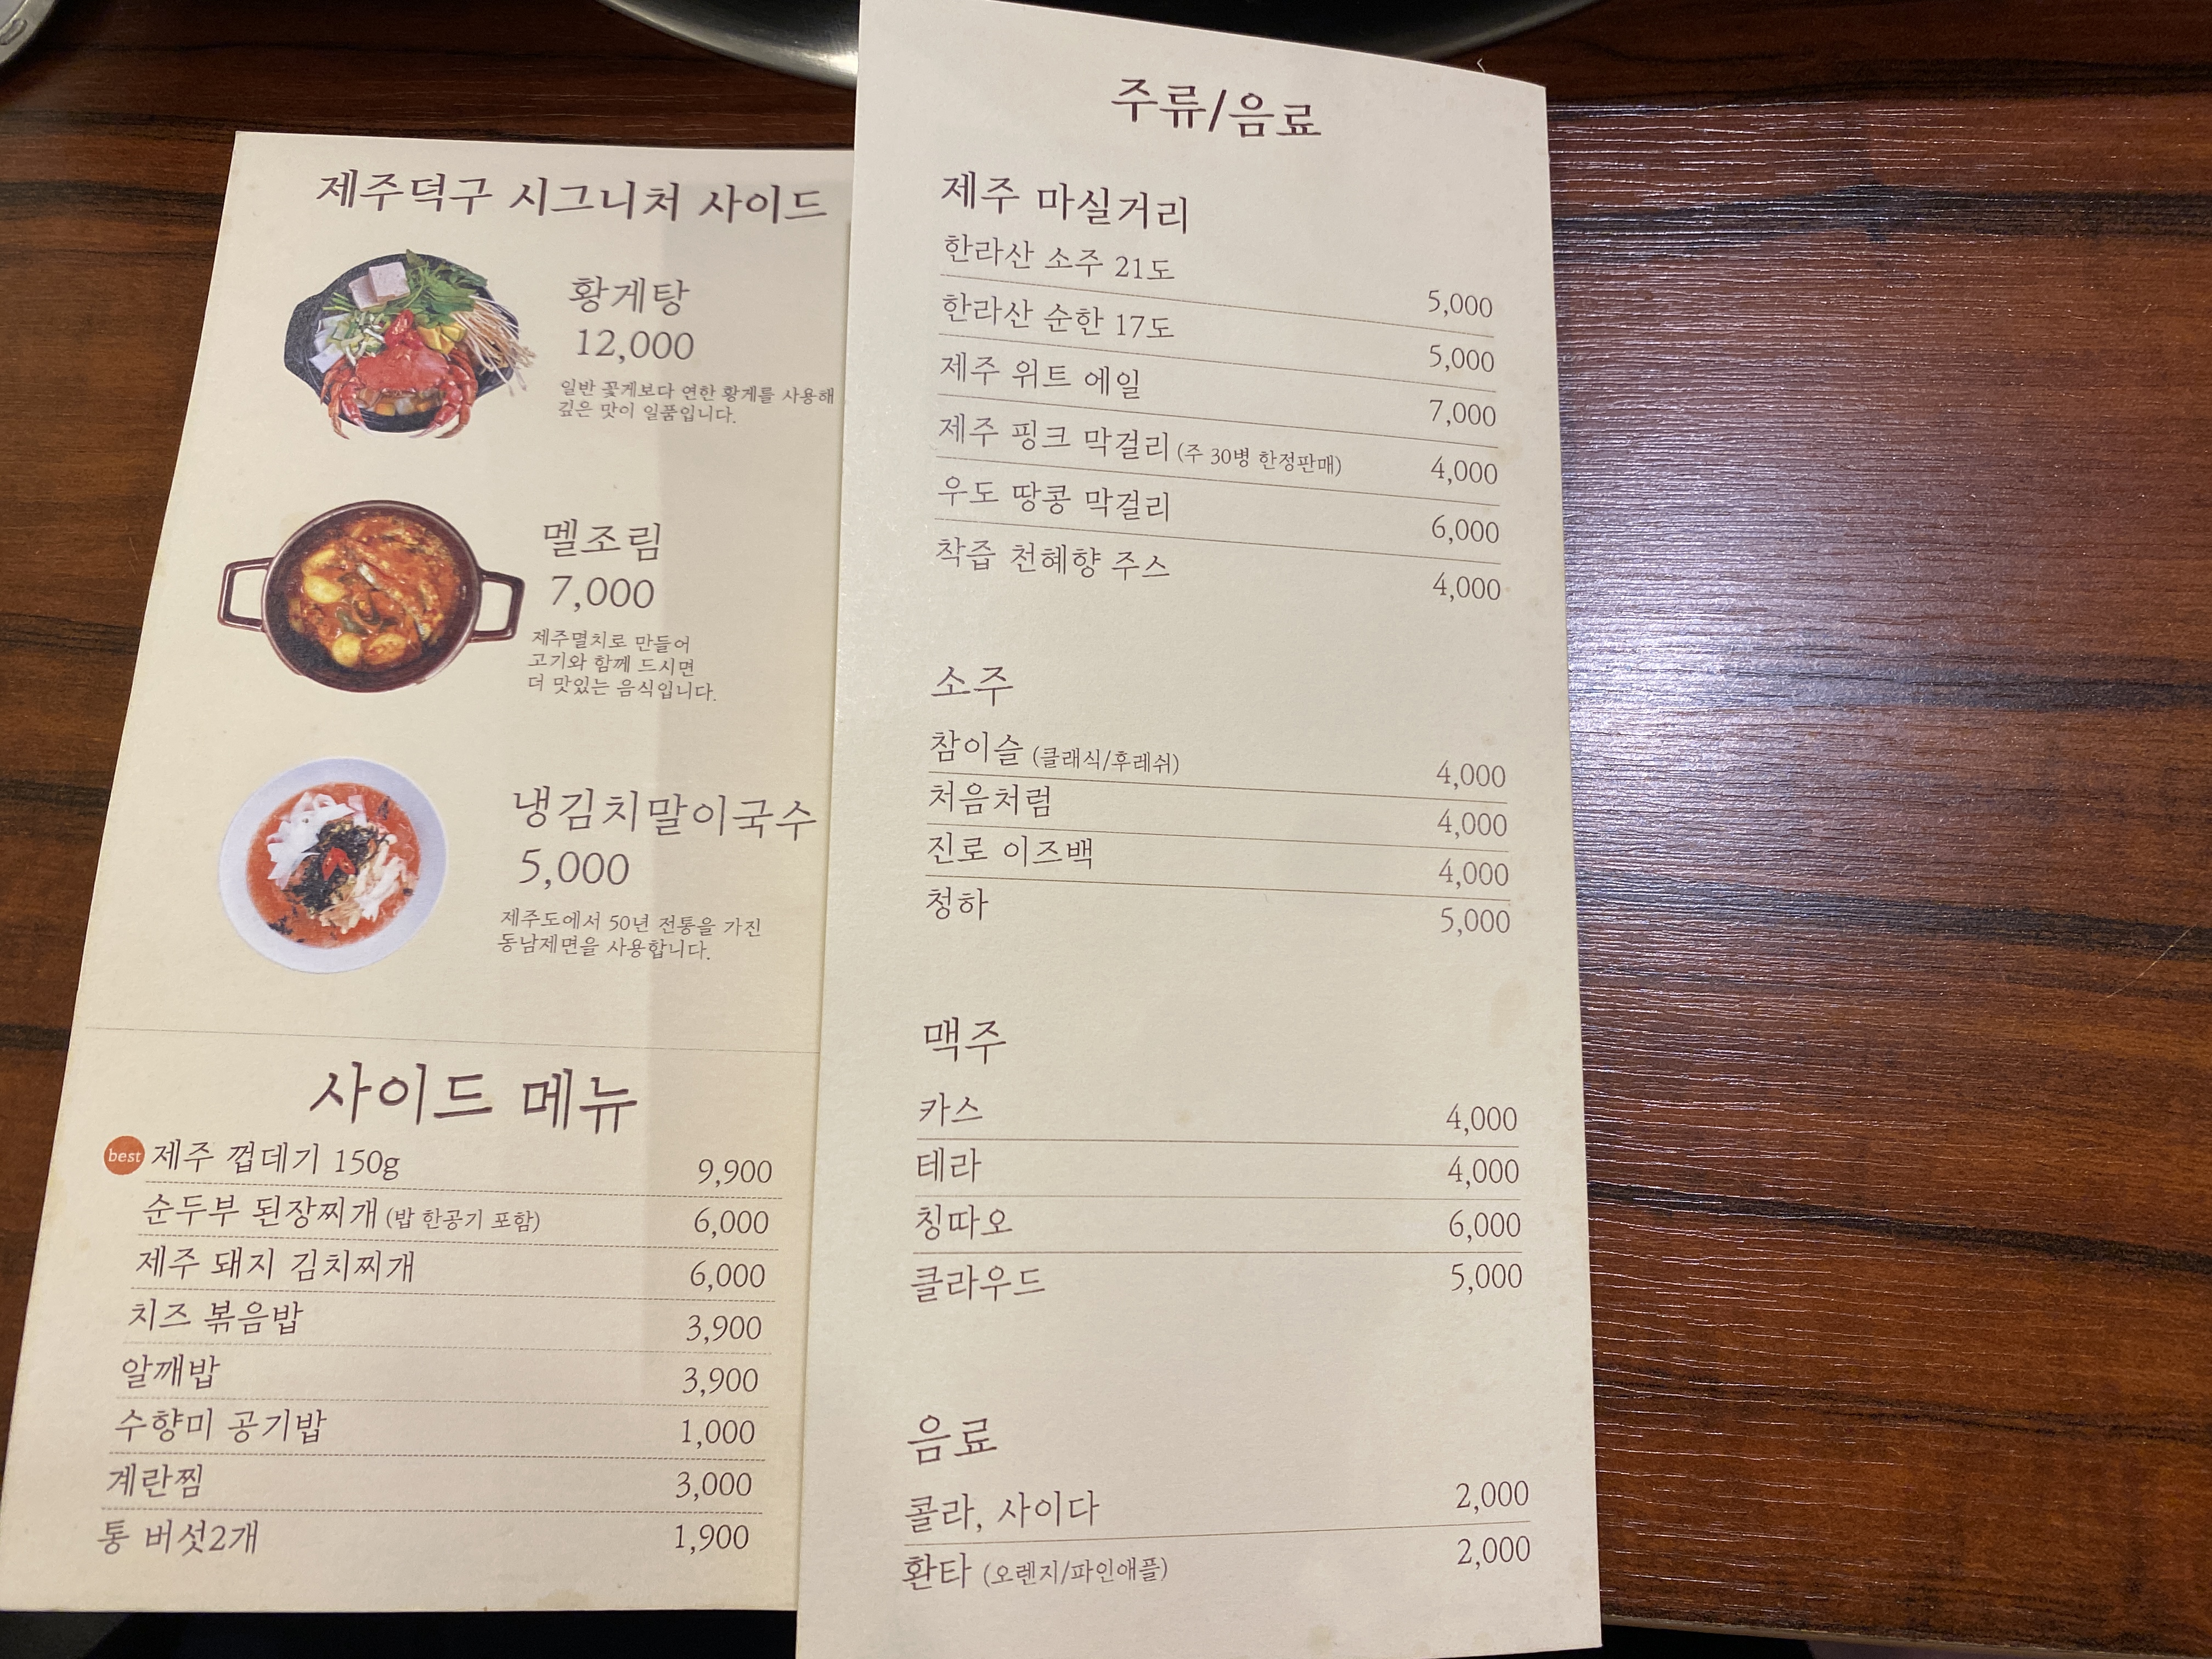 제주덕구 시그니처 사이드
황게탕
12,000
일반 꽃게보다 연한 황게를 사용해
깊은 맛이 일품입니다.
멜조림
7,000
제주멸치로 만들어
고기와 함께 드시면
더 맛있는 음식입니다.
냉김치말이국수
5,000
제주도에서 50년 전통을 가진
동남제면을 사용합니다.
사이드 메뉴
best 제주 껍데기 150g 9,900
순두부 된장찌개 (밥 한공기 포함) 6,000
제주 돼지 김치찌개 6,000
치즈 볶음밥 3,900
알깨밥 3,900
수향미 공기밥 1,000
계란찜 3,000
통 버섯2개 1,900
주류/음료
제주 마실거리
한라산 소주 21도 5,000
한라산 순한 17도 5,000
제주 위트 에일 7,000
제주 핑크 막걸리 (주 30병 한정판매) 4,000
우도 땅콩 막걸리 6,000
착즙 천혜향 주스 4,000
소주
참이슬 (클래식/후레쉬) 4,000
처음처럼 4,000
진로 이즈백 4,000
청하 5,000
맥주
카스 4,000
테라 4,000
칭따오 6,000
클라우드 5,000
음료
콜라, 사이다 2,000
환타 (오렌지/파인애플) 2,000